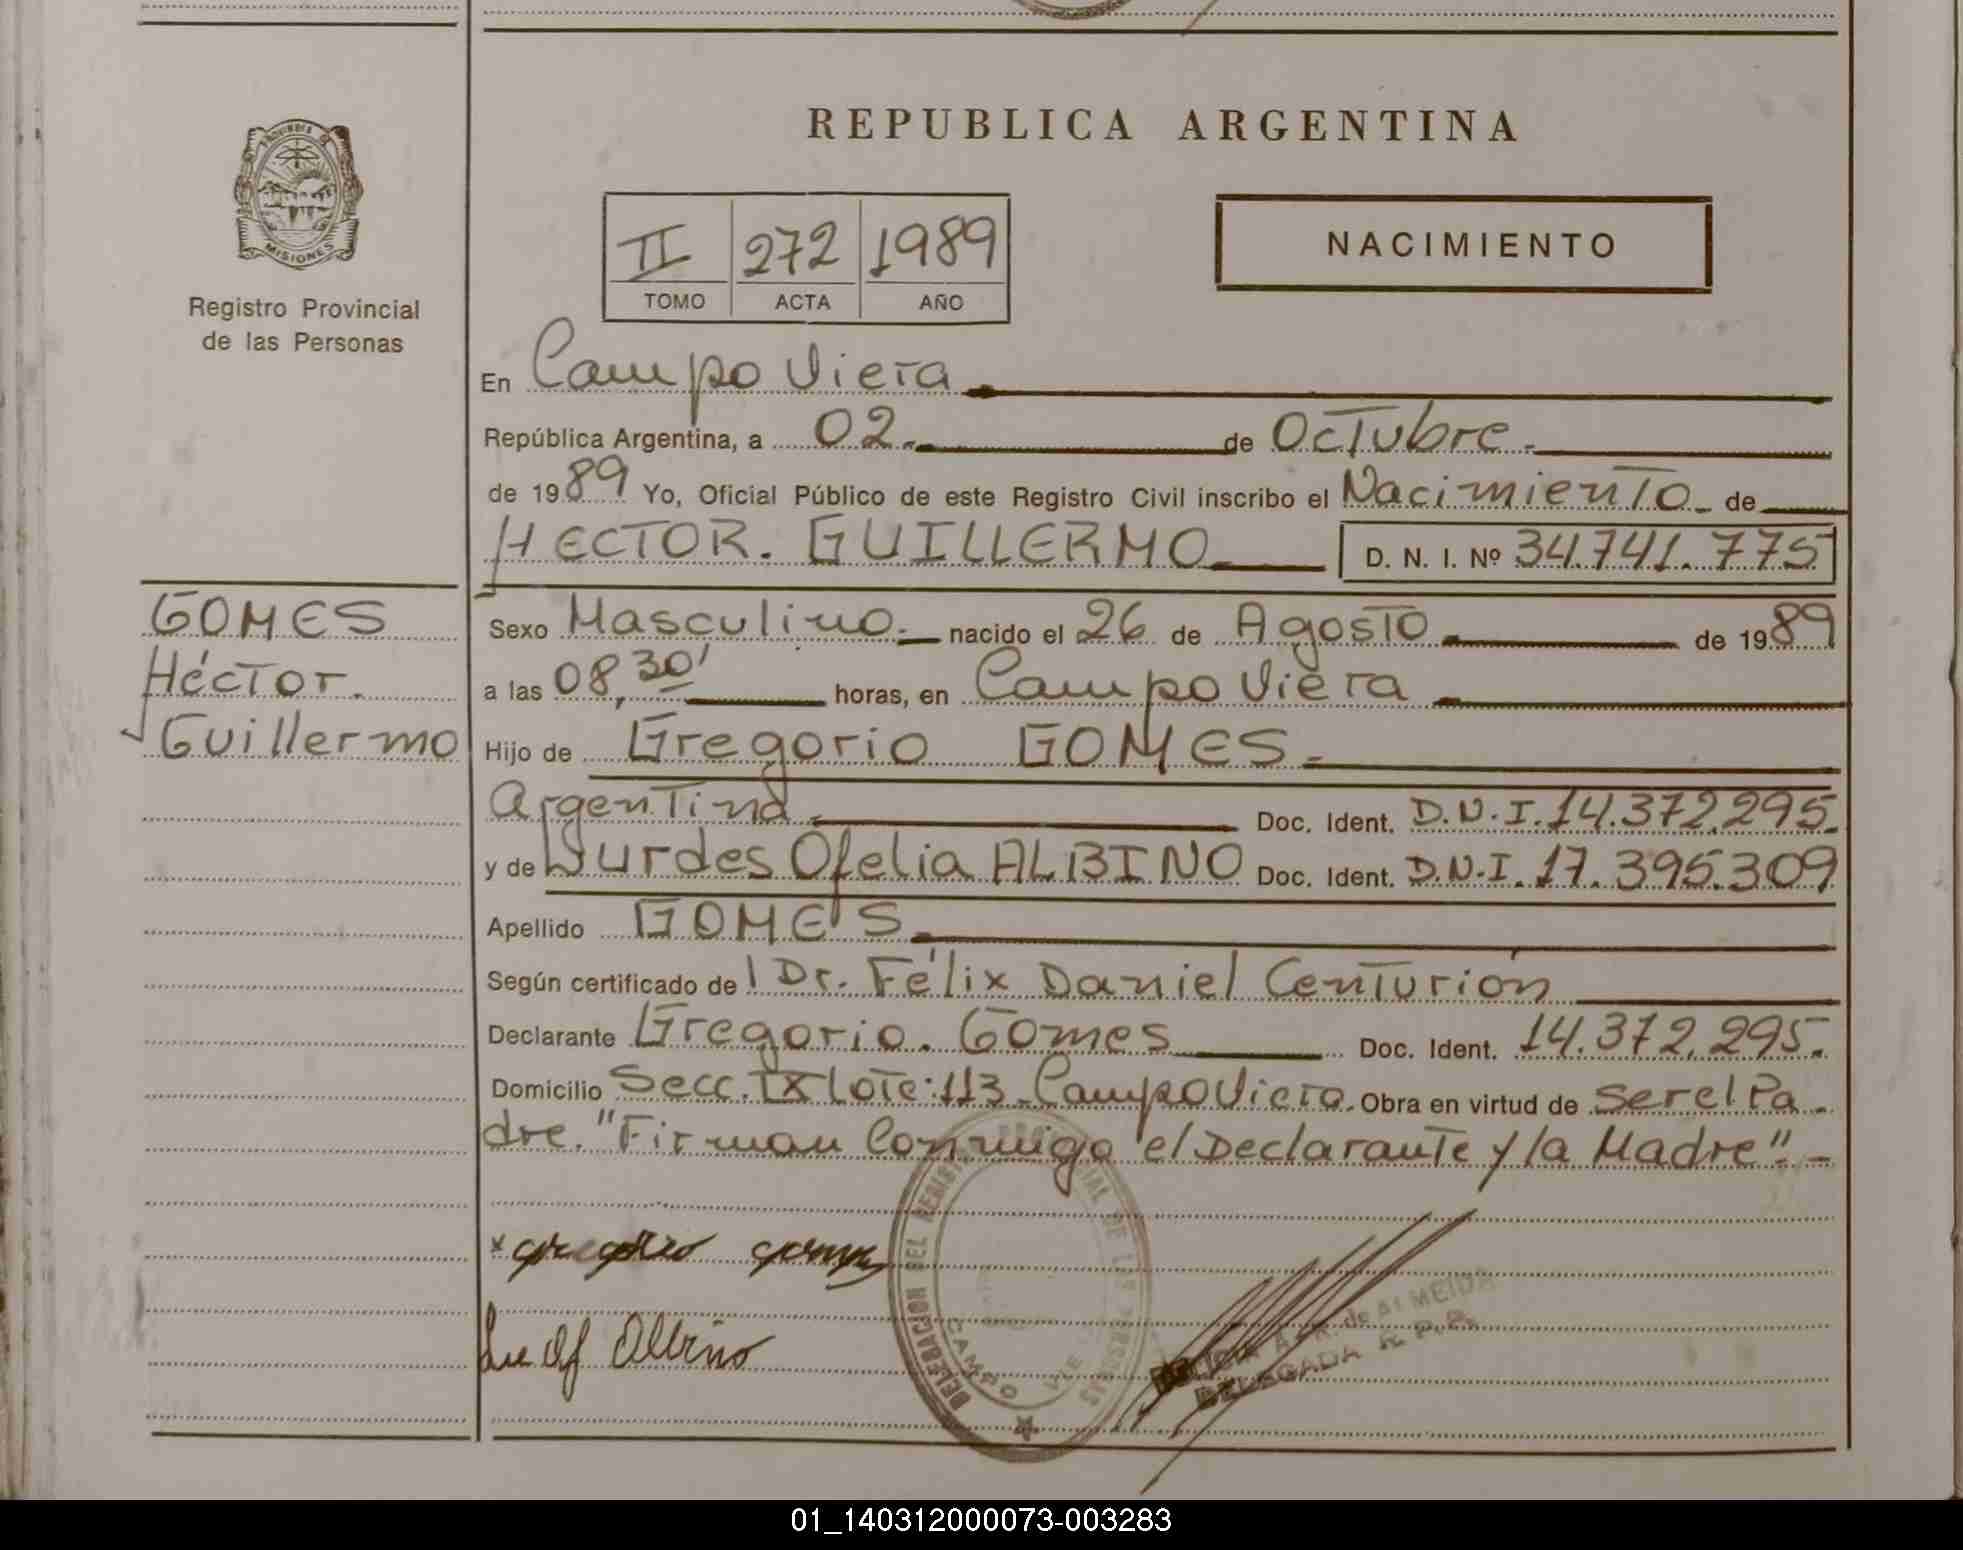 REPUBLICA ARGENTINA
MISIONES
Registro Provincial
de las Personas
II 272 1989
TOMO ACTA AÑO
NACIMIENTO
En Campo Viera
República Argentina, a 02 de Octubre
de 1989 Yo, Oficial Público de este Registro Civil inscribo el Nacimiento de
HECTOR. GUILLERMO D. N. I. Nº 34.741.775
GOMES
Héctor.
Guillermo
Sexo Masculino nacido el 26 de Agosto de 1989
a las 08,30' horas, en Campo Viera
Hijo de Gregorio GOMES
Argentina Doc. Ident. D.N.I. 14.372.295.
y de Lurdes Ofelia ALBINO Doc. Ident. D.N.I. 17.395.309
Apellido GOMES
Según certificado de l Dr. Félix Daniel Centurión
Declarante Gregorio. Gomes Doc. Ident. 14.372.295.
Domicilio Secc. IX Lote: 113 Campo Viera. Obra en virtud de ser el Pa-
dre. "Firman Conmigo el Declarante y la Madre" -
x gregorio gomes
Lu Of Albino
DELEGACION DEL REGISTRO PROVINCIAL DE LAS PERSONAS
CAMPO VIERA
de ALMEIDA
DELEGADA R.P.P.
01_140312000073-003283